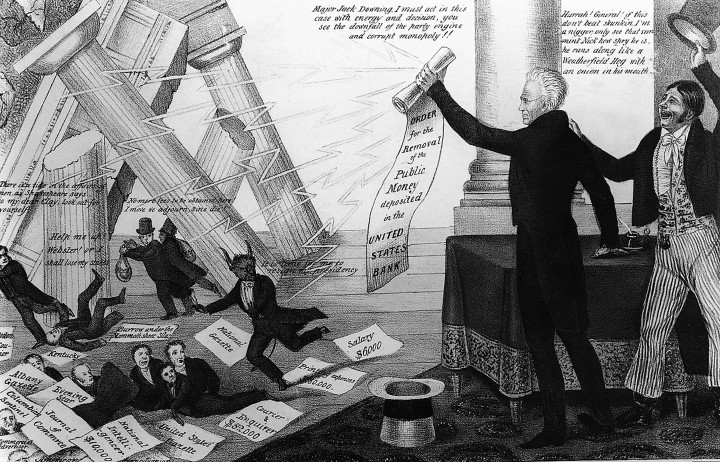 Major Jack Downing, I must act in this
case with energy and decision, you
see the downfall of the party engine
and corrupt monopoly!!
Hurrah! General! if this
don't beat skunkin, I'm
a nigger, only see that var-
mint Nick how spry he is,
he runs along like a
Weatherfield Hog with
an onion in his mouth.
ORDER
for the
Removal
of the
Public
Money
deposited
in the
UNITED
STATES
BANK
There is a tide in the affairs of
men, as Shakespeare says
so my dear Clay, look out for
yourself
No more fees to be obtained here!
I move we adjourn, sine die
Help me up!
Webster! or I
shall lose my stakes
time for me to
resign the presidency
Burrow under the
Mammoth sheet
Kentucky
National
Gazette
Salary
$6,000
Expenses
Courier
Enquirer
$52,000
Albany
Gazette
Evening
Journal
of
Commerce
National
Intelli-
gencer
United States
Gazette